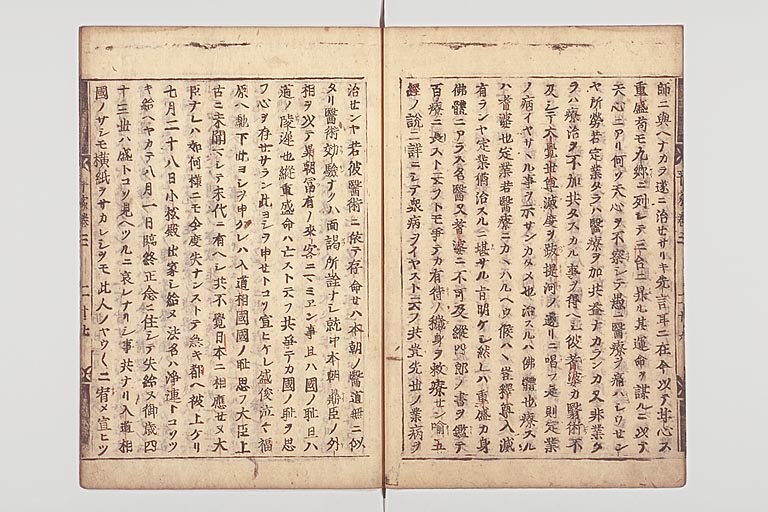 師ニ與ヘナカラ遂ニ治セサリキ先言耳ニ在今以テ甘心ス
重盛苟モ九卿ニ列シテ三台ニ昇ル其運命ヲ謀ルニ以テ
天心ニアリ何ソ天心ヲ不察シテ愚ニ醫療ヲ痛ハシウセン
ヤ所勞若定業タラハ醫療ヲ加共益ナカランカ又非業タ
ラハ療治ヲ不加共タスカル事ヲ得ヘシ彼耆婆カ醫術不
及シテ大覺世尊滅度ヲ跋提河ノ邊リニ唱フ是則定業
ノ病イヤササル事ヲ示サンカタメ也治スルハ佛體也療スル
ハ耆婆也定業若醫療ニカヽハルヘウ候ハヽ豈釋尊入滅
有ランヤ定業猶治スルニ堪サル旨明ケシ然レハ重盛カ身
佛體ニアラス名醫又耆婆ニ不可及縱四部ノ書ヲ鑑テ
百療ニ長スト云フトモ爭テカ有待ノ穢身ヲ救療セン喻五
經ノ說ニ詳ニシテ衆病ヲイヤスト云フ共豈先世ノ業病ヲ
治センヤ若彼醫術ニ依テ存命セハ本朝ノ醫道無ニ似
タリ醫術効驗ナクハ面謁所詮ナシ就中本朝鼎臣ノ外
相ヲ以テ異朝冨有ノ來客ニミヱン事且ハ國ノ耻且ハ
道ノ陵遲也縱重盛命ハ亡スト云フ共爭テカ國ノ耻ヲ思
フ心ヲ存セサラン此ヨシヲ申セトコソ宣ヒケレ盛俊泣々福
原ヘ馳下此ヨシヲ申ケレハ入道相國國ノ耻思フ大臣上
古ニ未聞マシテ末代ニ有ヘシ共不覺日本ニ相應セヌ大
臣ナレハ如何樣ニモ今度失ナンストテ急キ都ヘ被上ケリ
七月二十八日小松殿出家シ給ヌ法名ハ淨蓮トコソツ
キ給ヘヤカテ八月一日臨終正念ニ住シテ失給ヌ御歲四
十三世ハ盛トコソ見ヘツルニ哀レナリシ事共ナリ入道相
國ノサシモ橫紙ヲサカレシヲモ此人ノヤウヽヽニ宥メ宣ヒツ